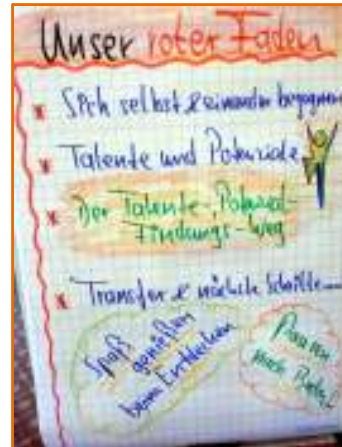 Unser roter Faden
Sich selbst & einander begegnen
Talente und Potenziale
Der Talente-, Potenzial-
Findungs-Weg
Transfer & nächste Schritte
Spaß
genießen
beim Entdecken
Pausen
nach Bedarf